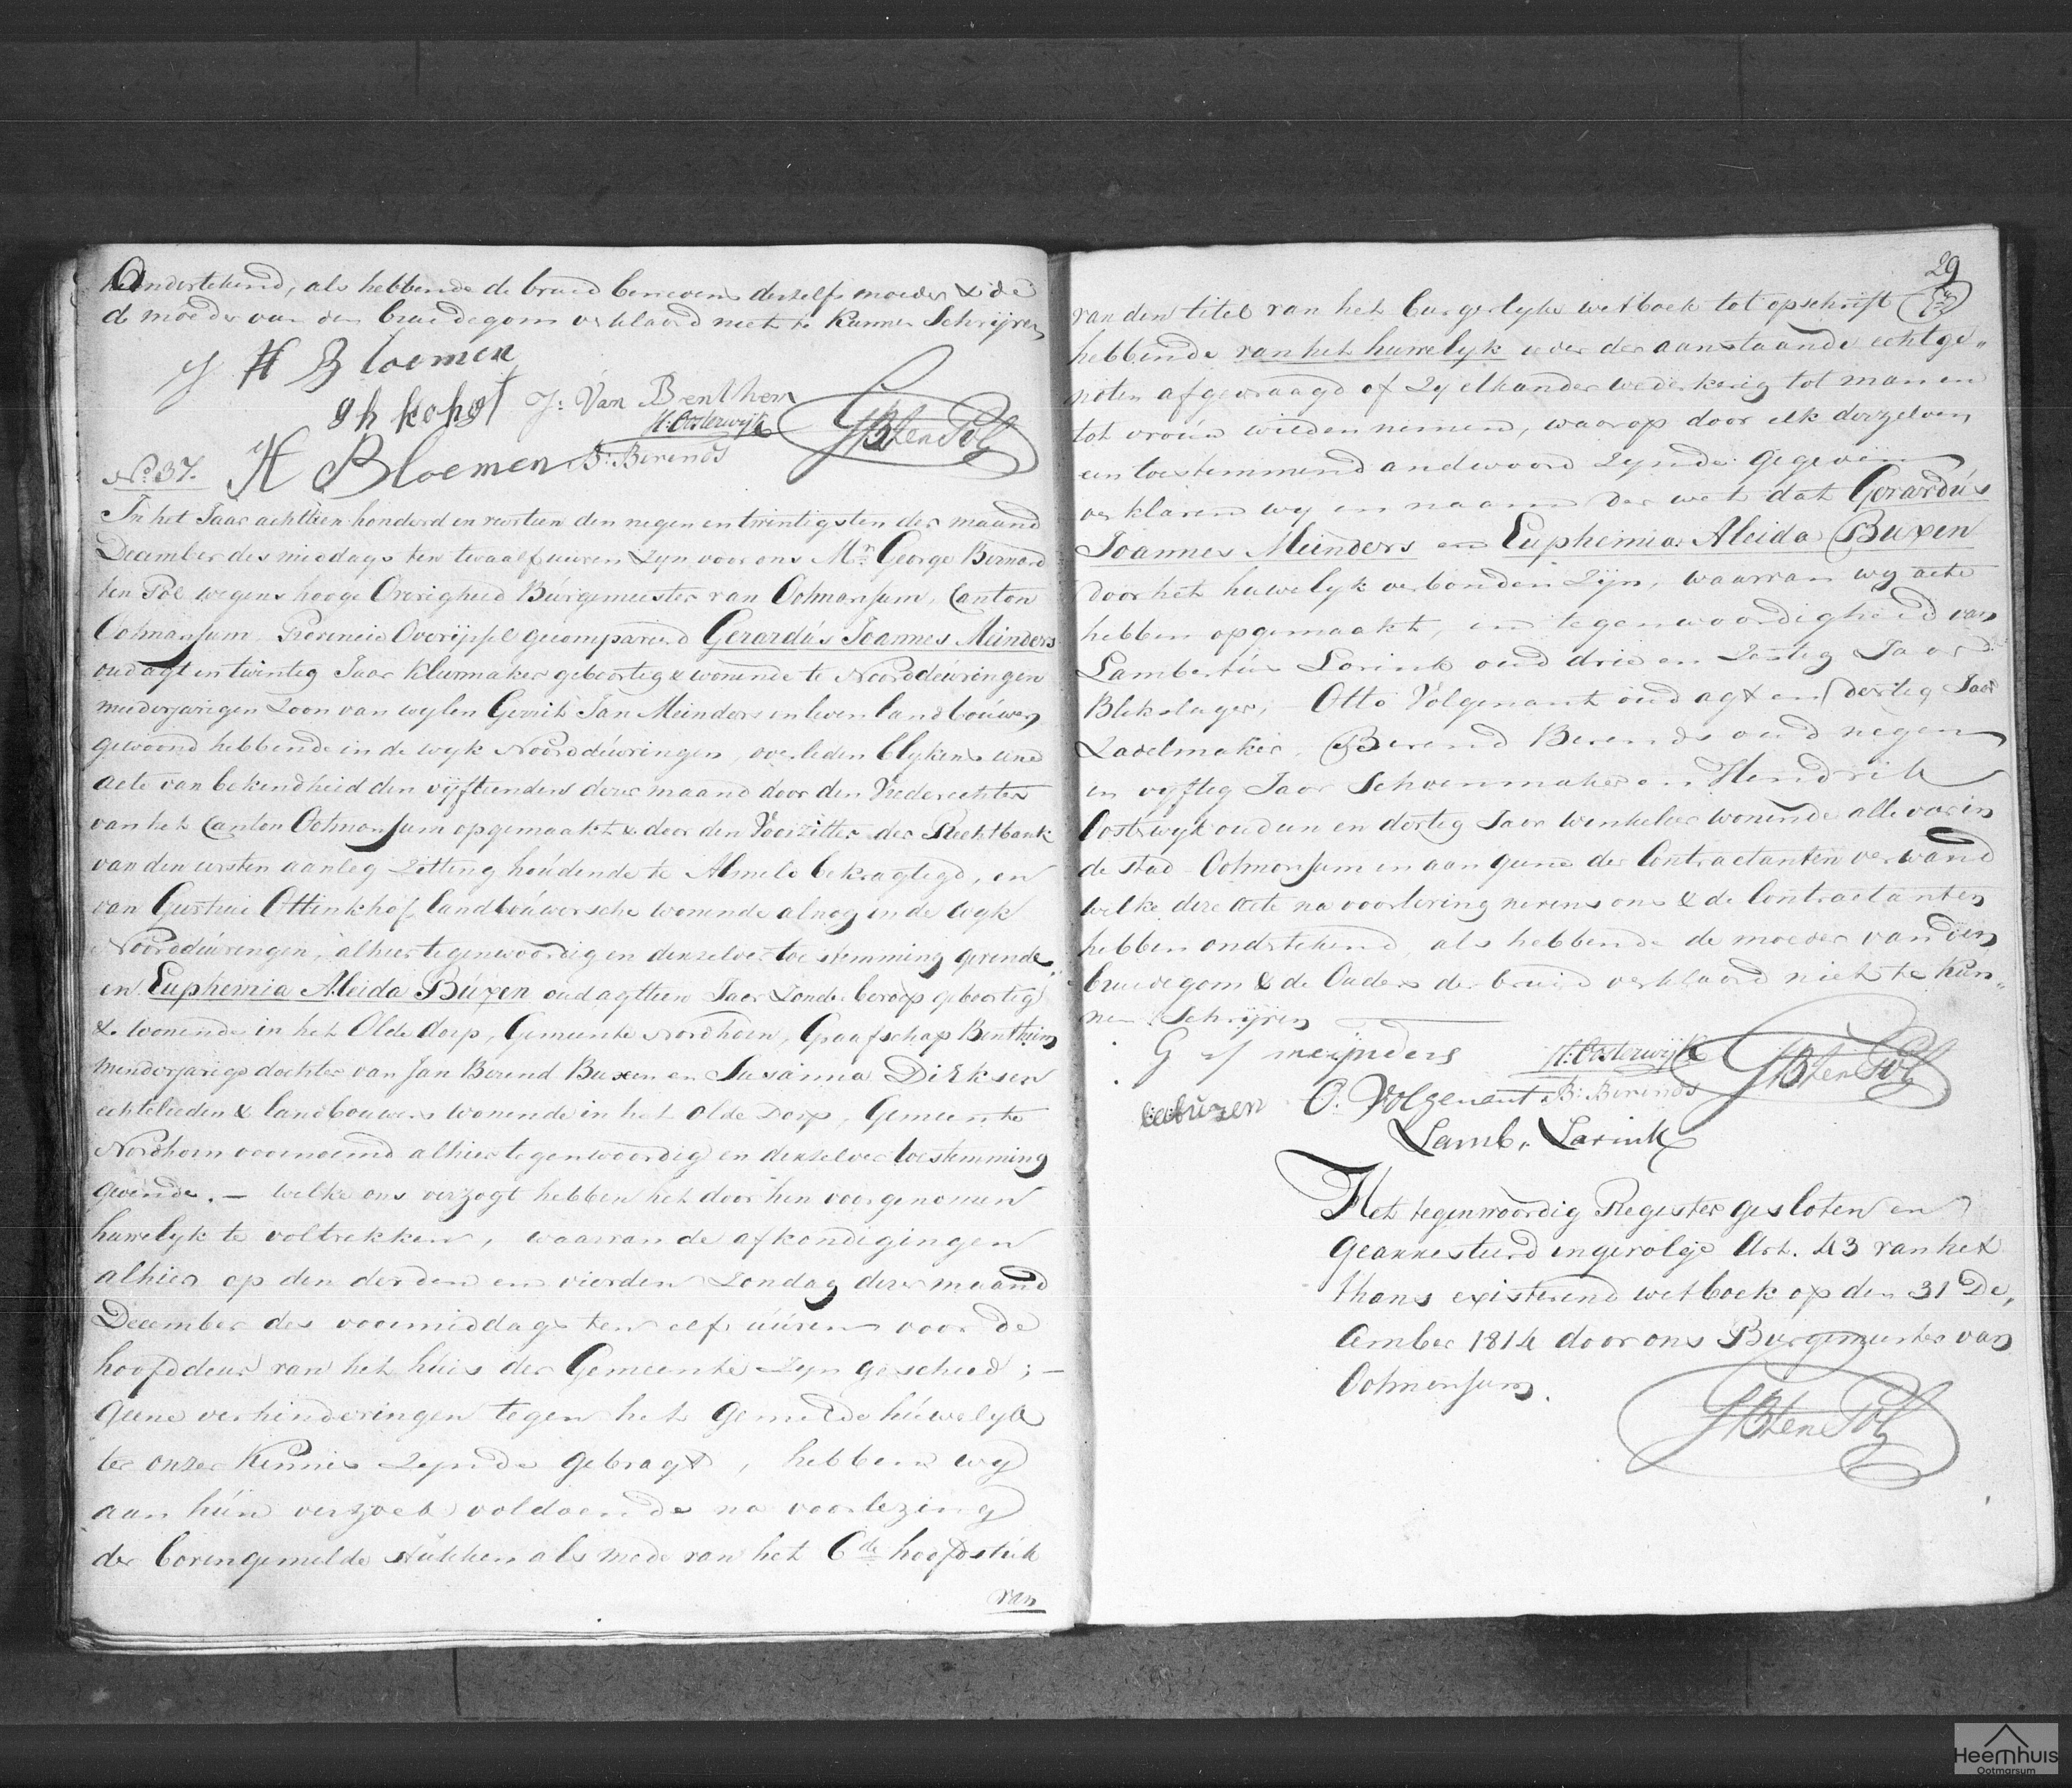 ondertekend, als hebbende de bruid benevens derzelfs moeder & de
de moeder van den bruidegom verklaard niet te kunnen Schrijven
J H Bloemen
gh kohgt
J: Van Benthem
H: Oosterwijk
GBtenPol
H Bloemen
B: Berends
No. 37.
In het Jaar achttien honderd en veertien den negen en twintigsten der maand
December des middags ten twaalf uuren Zyn voor ons Mr. George Bernard
ten Pol wegens hooge Overigheid Burgemeester van Ootmarsum, Canton
Ootmarsum, Provincie Overijssel gecompareerd Gerardus Joannes Meinders
oud agt en twintig Jaar kleermaker geboortig & wonende te Noorddeuringen
meerderjarigen Zoon van wylen Gerrit Jan Meinders in leven landbouwer
gewoond hebbende in de wyk Noorddeuringen, overleden blykens eene
acte van bekendheid den vyftienden dezer maand door den Vrederechter
van het Canton Ootmarsum opgemaakt & door den Voorzitter der Rechtbank
van den eersten aanleg Zitting houdende te Almelo bekragtigd, en
van Geertrui Ottinkhof landbouwersche wonende alnog in de wyk
Noorddeuringen, alhier tegenwoordig en derzelver toestemming gevende
en Euphemia Aleida Buxen oud agttien Jaar Zonder beroep geboortig
& wonende in het Olde dorp, Gemeente Nordhorn, Graafschap Benthem
minderjarige dochter van Jan Berend Buxen en Susanna Dirksen
echtelieden & landbouwers wonende in het Olde Dorp, Gemeente
Nordhorn voornoemd alhier tegenwoordig en derzelver toestemming
gevende. — welke ons verzogt hebben het door hen voorgenomen
huwelyk te voltrekken, waarvan de afkondigingen
alhier op den derden en vierden Zondag dezer maand
December des voormiddags ten elf uuren voor de
hoofddeur van het huis der Gemeente Zyn geschied; —
geene verhinderingen tegen het gemelde huwelyk
ter onzer kennis Zynde gebragt, hebben wy
aan hun verzoek voldoende na voorlezing
der bovengemelde stukken als mede van het 6de hoofdstuk
van
29
van den titel van het burgerlyke wetboek tot opschrift
hebbende van het huwelyk ieder der aanstaande echtge„
noten afgevraagd of Zy elkander wederkerig tot man en
tot vrouw wilden nemen, waarop door elk derzelven
een toestemmend andwoord Zynde gegeven
verklaren wy in naam der wet dat Gerardus
Joannes Meinders en Euphemia Aleida Buxen
door het huwelyk verbonden Zijn, waarvan wy acte
hebben opgemaakt, in tegenwoordigheid van
Lambertus Lorink oud drie en Zestig Jaar
Blikslager, Otto Volgenant oud agt en dertig Jaar
Zadelmaker, Berend Berends oud negen
en vyftig Jaar Schoenmaker en Hendrik
Oosterwyk oud een en dertig Jaar winkelier wonende alle vier in
de stad Ootmarsum en aan geene der Contractanten verwand
welke deze acte na voorlezing nevens ons & de Contractanten
hebben ondertekend, als hebbende de moeder van den
bruidegom & de Ouders der bruid verklaard niet te kun„
nen Schrijven
G J meijnders
H: Oosterwijk
GBtenPol
O. Volgenant
B: Berends
Lamb. Lorink
Het tegenwoordig Register gesloten en
gearresteerd ingevolge Art. 43 van het
thans existerend wetboek op den 31 De,
cember 1814 door ons Burgemeester van
Ootmarsum.
GBtenPol
Heemhuis
Ootmarsum